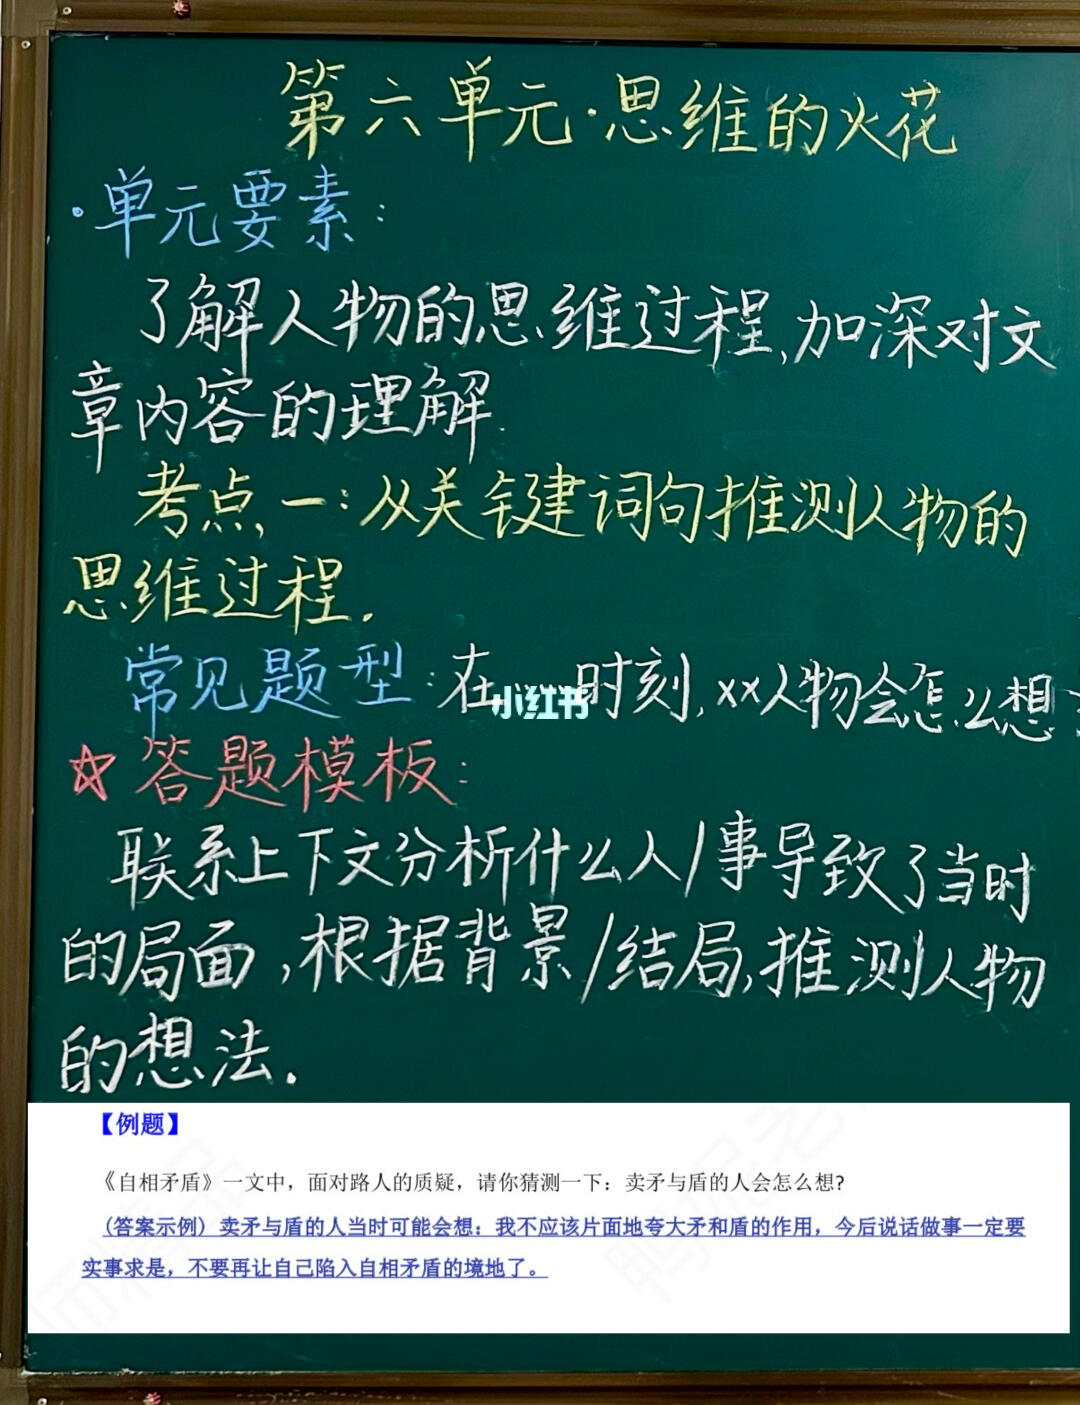 第六单元·思维的火花
·单元要素：
了解人物的思维过程,加深对文
章内容的理解.
考点一:从关键词句推测人物的
思维过程.
常见题型:在……时刻,xx人物会怎么想
小红书
☆答题模板:
联系上下文分析什么人/事导致了当时
的局面,根据背景/结局,推测人物
的想法.
【例题】
《自相矛盾》一文中，面对路人的质疑，请你猜测一下：卖矛与盾的人会怎么想?
（答案示例）卖矛与盾的人当时可能会想：我不应该片面地夸大矛和盾的作用，今后说话做事一定要
实事求是，不要再让自己陷入自相矛盾的境地了。